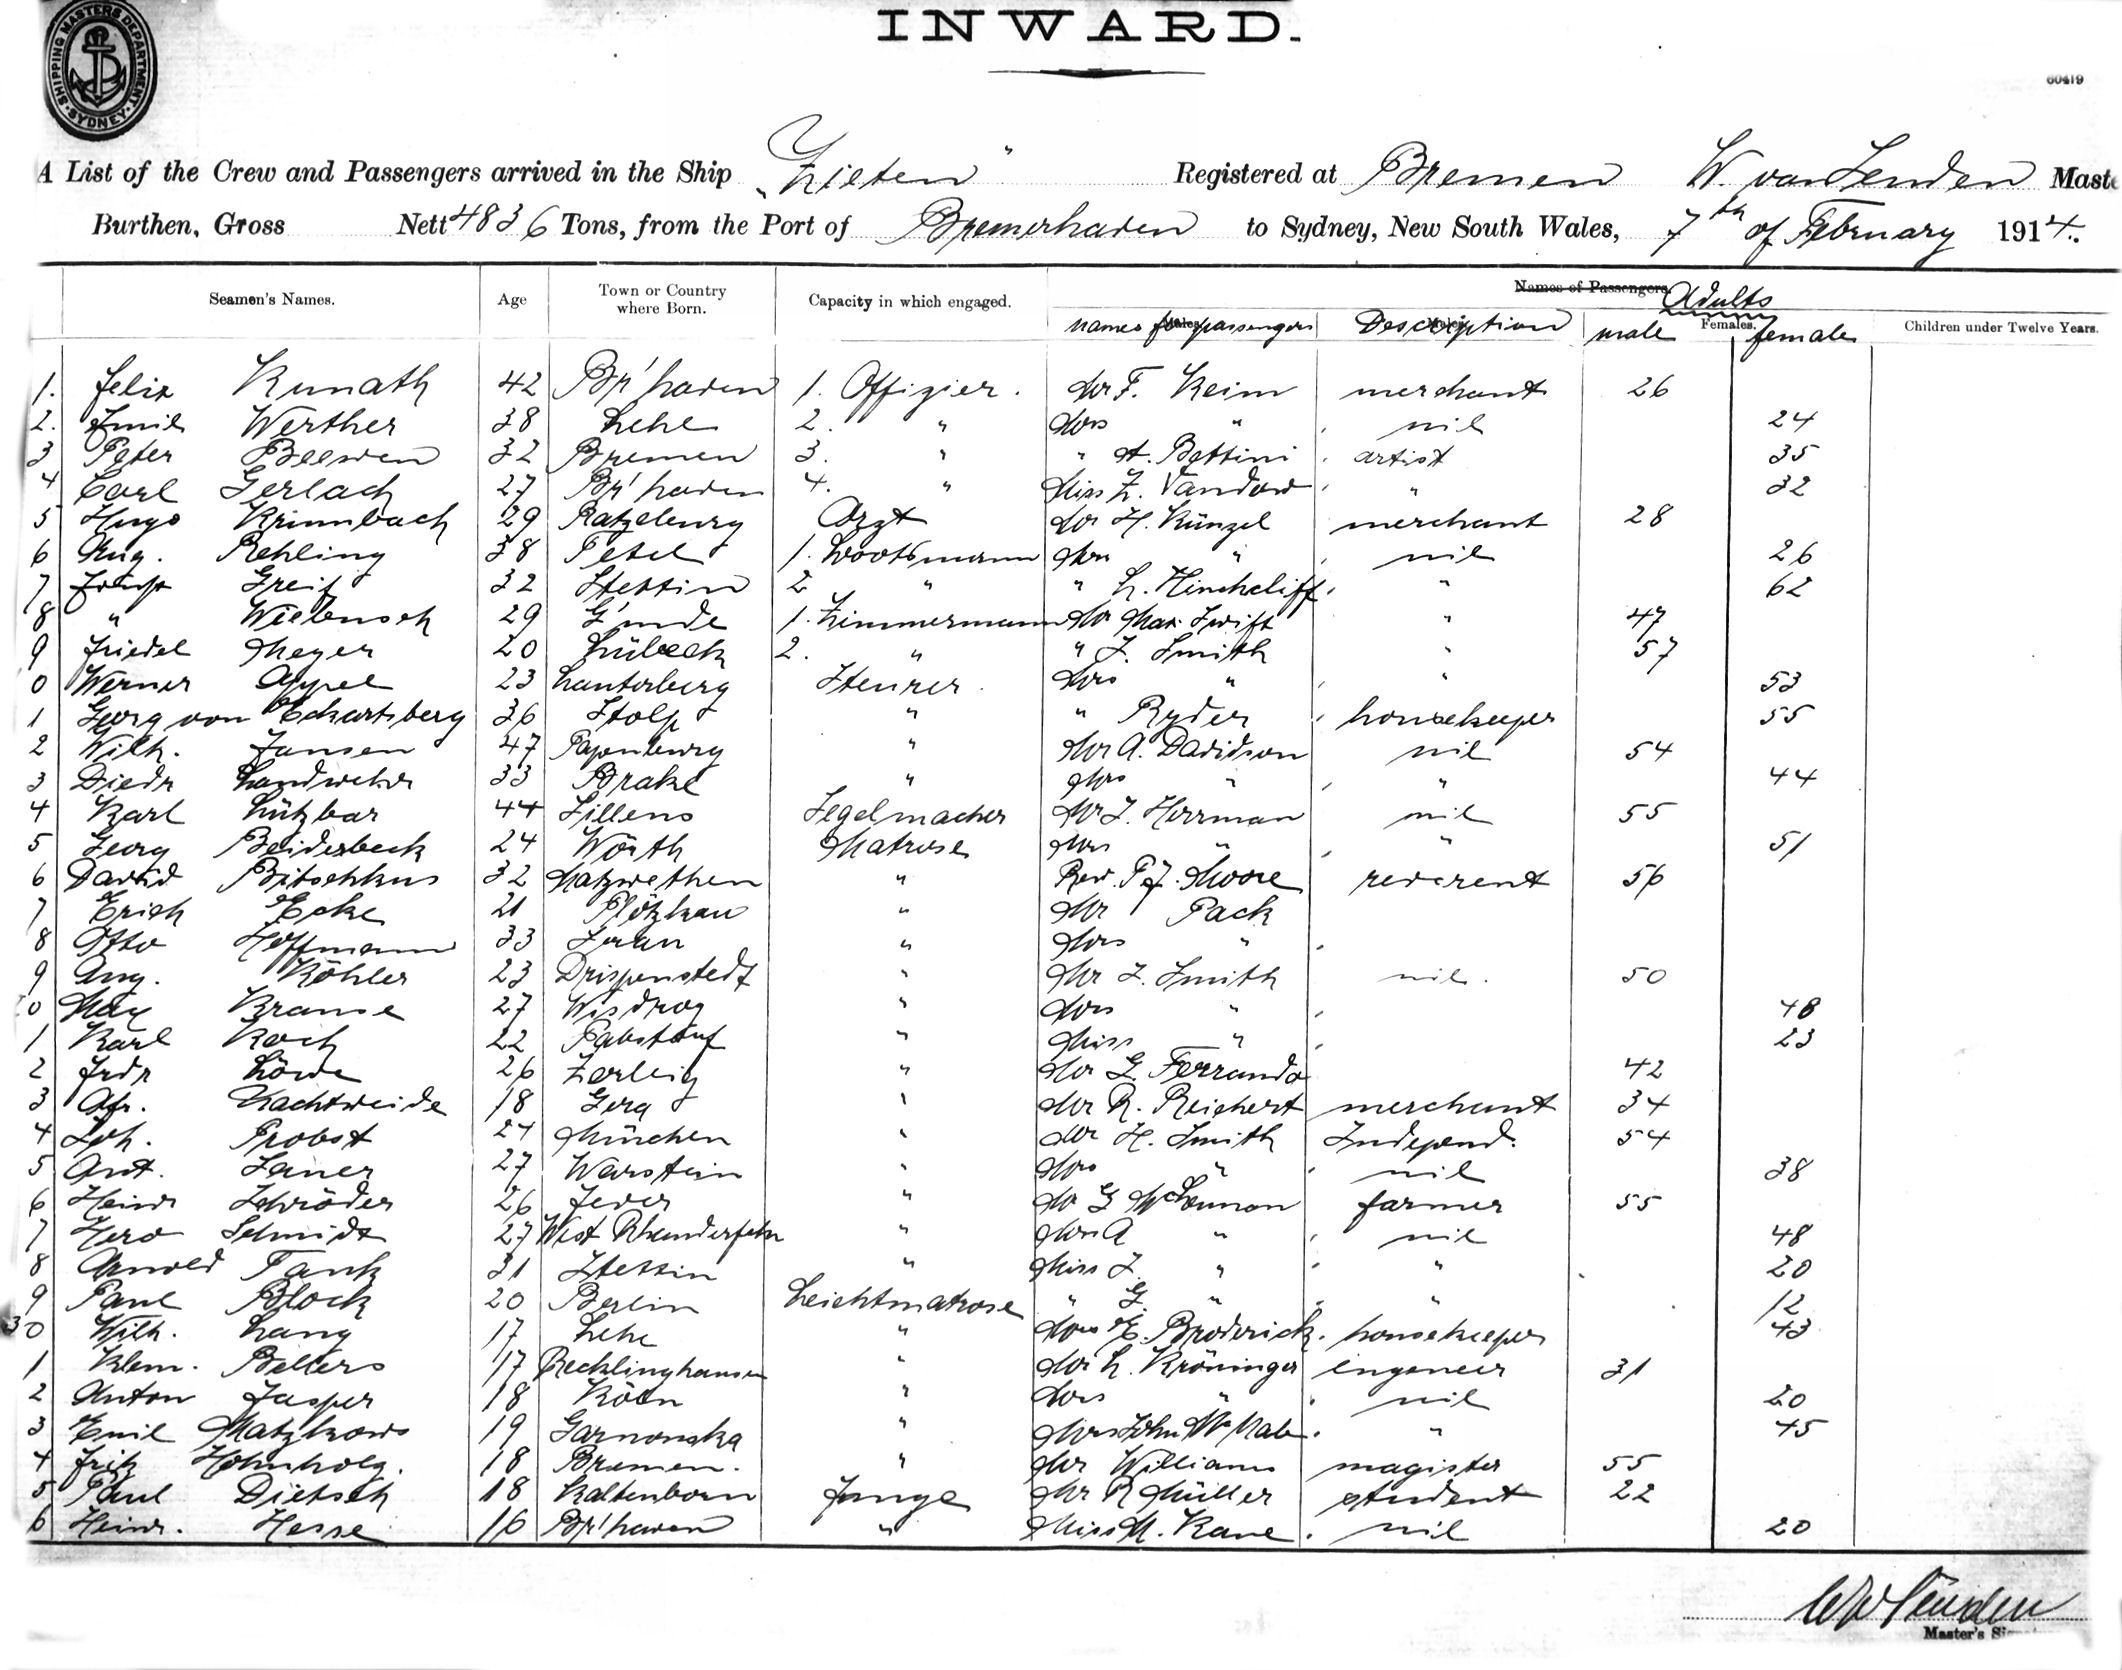 SHIPPING MASTERS DEPARTMENT · SYDNEY ·
INWARD.
60419
A List of the Crew and Passengers arrived in the Ship "Zieten" Registered at Bremen W. van Senden Maste
Burthen, Gross Nett 4836 Tons, from the Port of Bremerhaven to Sydney, New South Wales, 7th of February 1914.
Seamen's Names. Age Town or Country where Born. Capacity in which engaged. Names of Passengers. Adults
names of passengers Description male Females. female Children under Twelve Years.
1. Felix Kunath 42 Br'haven 1. Offizier. Mr F. Keim merchant 26
2. Emil Werther 38 Lehe 2. " Mrs " nil 24
3 Peter Beewen 32 Bremen 3. " " A. Bettini artist 35
4 Carl Gerlach 27 Br'haven 4. " Miss Z. Vandow " 32
5 Hugo Krimbach 29 Ratzeburg Arzt Mr H. Künzel merchant 28
6 Aug. Rehling 38 Petel 1. Bootsmann Mrs " nil 26
7 Greif 32 Stettin 2 " " L. Hinchcliff " 62
8 " Wiebusch 29 G'münde 1. Zimmermann Mr Max Swift " 47
9 Friedel Meyer 20 Lübeck 2. " " J. Smith " 57
0 Werner Appel 23 Lauterberg Steurer. Mrs " " 53
1 Georg von Eckartsberg 36 Stolp " " Ryder housekeeper 55
2 Wilh. Jansen 47 Papenburg " Mr A. Davidson nil 54
3 Diedr Landwehr 33 Brake " Mrs " " 44
4 Karl Lützbar 44 Lillens Segelmacher Mr J. Herrman nil 55
5 Georg Beiderbeck 24 Wörth Matrose Mrs " " 51
6 David Bitschkus 32 Matzwethen " Rev. P J. Moore reverent 56
7 Erich Ecke 21 Plötzkau " Mr Pack
8 Otto Hoffmann 33 " Mrs "
9 Aug. Köhler 23 Drispenstedt " Mr J. Smith nil. 50
0 Max Krause 27 Wisdroy " Mrs " 48
1 Karl Koch 22 Pabstorf " Miss " 23
2 Frdr Löwe 26 Zörbig " Mr G. Ferrando 42
3 Afr. Nachtweide 18 Gera " Mr R. Reichert merchant 34
4 Joh. Probst 27 München " Mr H. Smith Independ. 54
5 Ant. Sauer 27 Warstein " Mrs " nil 38
6 Heinr Schröder 26 Jever " Mr G McLennan farmer 55
7 Hero Schmidt 27 West Rhauderfehn " Mrs A " nil 48
8 Arnold Tank 31 Stettin " Miss J. " " 20
9 Paul Block 20 Berlin Leichtmatrose " G. " " 12
30 Wilh. Lang 17 Lehe " Mrs E. Broderick. housekeeper 43
1 Klem. Bellers 17 Recklinghausen " Mr L. Kröninger engeneer 31
2 Anton Jasper 18 Köln " Mrs " nil 20
3 Emil Matzkows 19 Garnonska " Mrs John McNab. " 45
4 Fritz Hohnholz. 18 Bremen. " Mr Williams magister 55
5 Paul Dietsch 18 Kaltenborn Junge Mr R Müller student 22
6 Heinr. Hesse 16 Br'haven " Miss M. Kane. nil 20
W v Senden
Master's Si